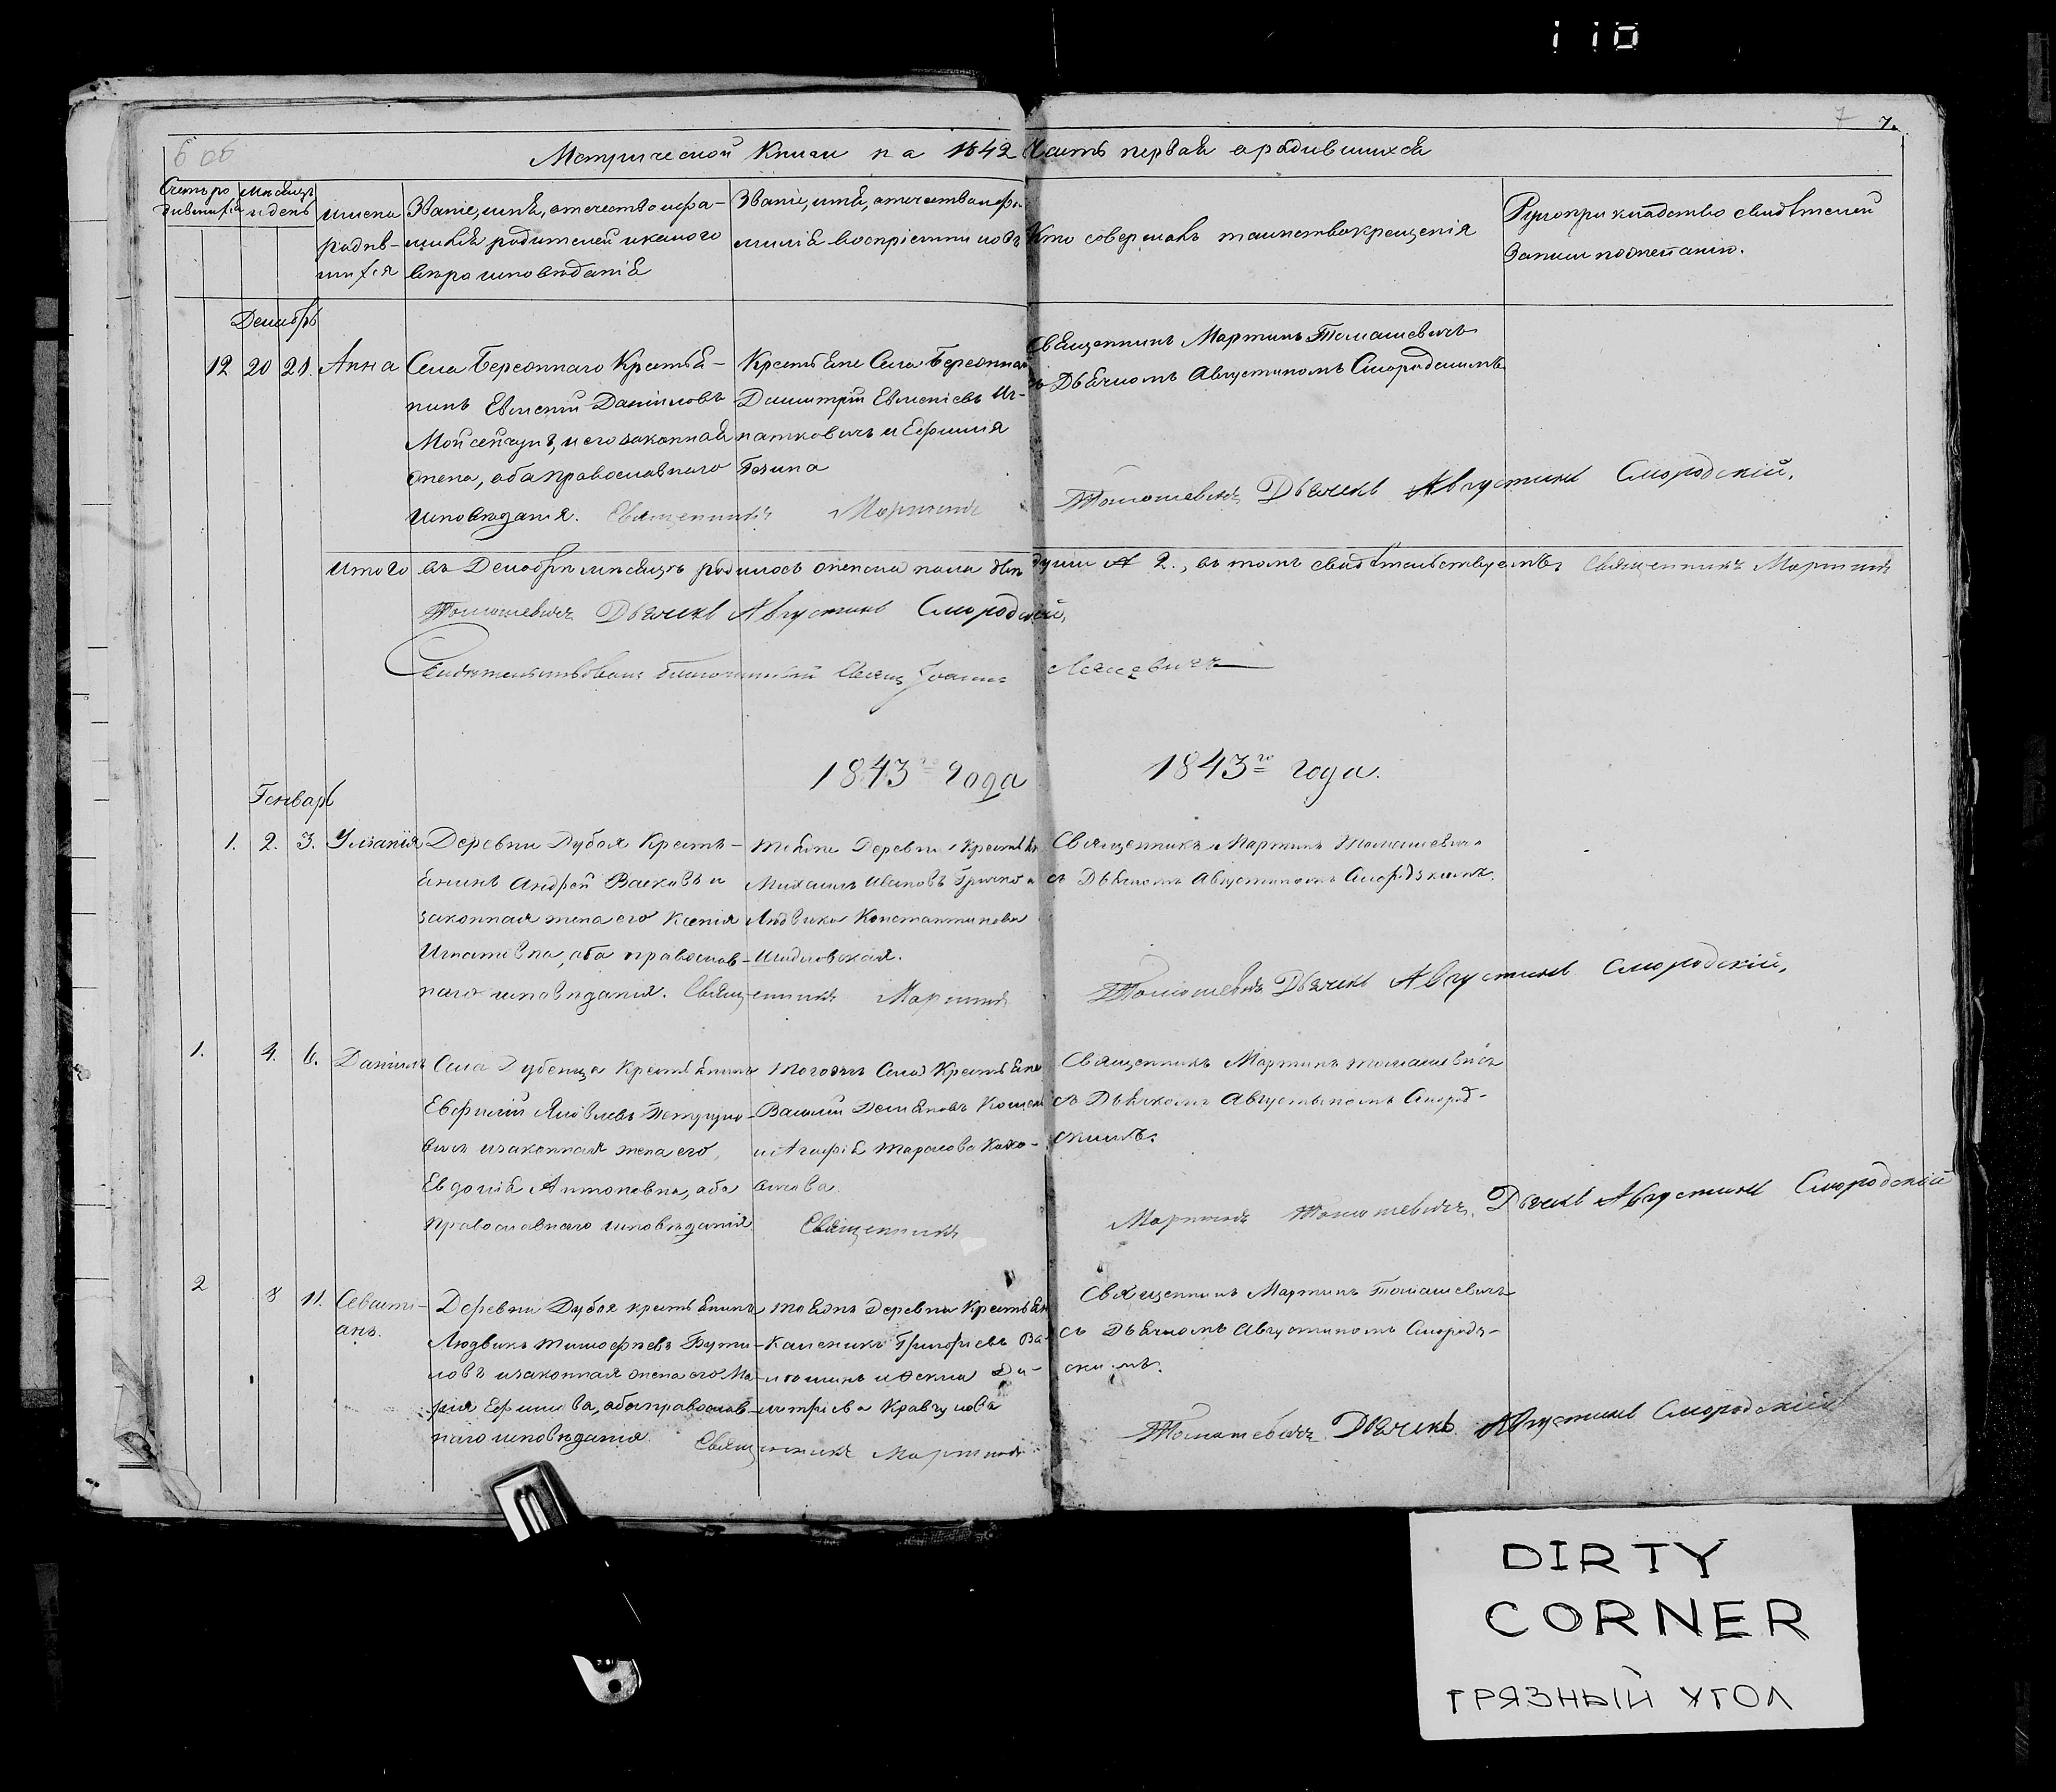 110
6 об
7 7.
Метрической Книги на 1842 Часть первая о родившихся
Счетъ ро
дившихся
Мѣсяцъ
и день
имена
родив-
шихся
Званіе, имя, отечество и фа-
милія родителей и какого
вѣроисповѣданія
Званіе, имя, отечество и фа-
милія воспріемниковъ
Кто совершалъ таинство крещенія
Рукоприкладство свидѣтелей
записи по желанію.
Декабрь
12 20 21. Анна
Села Березнаго Крестья-
нинъ Евмений Данiиловъ
Мойсейчукъ, и его законная
жена, оба православнаго
исповѣданія. Священникъ Мартинъ
Крестьяне Села
Димитрій Евменіевъ Иг-
натковичъ и Ефимія
Священникъ Мартинъ Томашевичъ
съ Дьячкомъ Августиномъ Смородскимъ
Томашевичъ Дьячекъ Августинъ Смородскій.
Итого въ Декабрѣ мѣсяцѣ родилось женска пола двѣ души 2., въ томъ свидѣтельствуемъ. Священникъ Мартинъ
Томашевичъ Дьячекъ Августинъ Смородскій,
Свидѣтельствовалъ благочинный Свящ Іоаннъ
1843 года 1843го года.
Генварь
1. 2. 3. Уліанія
Деревни Дубоя Кресть-
янинъ Андрей Васковъ и
законная жена его Ксенія
Игнатовна, оба православ-
наго исповѣданія. Священникъ Мартинъ
Деревни
Михаилъ Ивановъ и
Людвика Константинова
Шидловская.
Священникъ Мартинъ Томашевичъ
съ Дьячкомъ Августиномъ Смородскимъ.
Томашевичъ Дьячекъ Августинъ Смородскій,
1. 4. 6. Даніилъ
Села Дубенца Крестьянинъ
Евфимій Яковлевъ
и законная жена его,
Евдокія Антоновна, оба
православнаго исповѣданія
Тогожъ Села Крестьяне
Василій Демьяновъ
и Агафія Тарасова
Священникъ
Священникъ Мартинъ Томашевичъ
съ Дьячкомъ Августиномъ Смород-
скимъ.
Мартинъ Томашевичъ. Дьячекъ Августинъ Смородскій
2 8 11. Севасті-
анъ.
Деревни Дубоя крестьянинъ
Людвикъ Тимофеевъ Бути-
ловъ и законная жена его Ма-
рія Ефимова, оба православ-
наго исповѣданія. Священникъ Мартинъ
деревни
Григорьевъ
Ди-
митріева
Священникъ Мартинъ Томашевичъ
съ Дьячкомъ Августиномъ Смород-
скимъ.
Томашевичъ. Дьячекъ. Августинъ Смородскій
DIRTY
CORNER
ГРЯЗНЫЙ УГОЛ